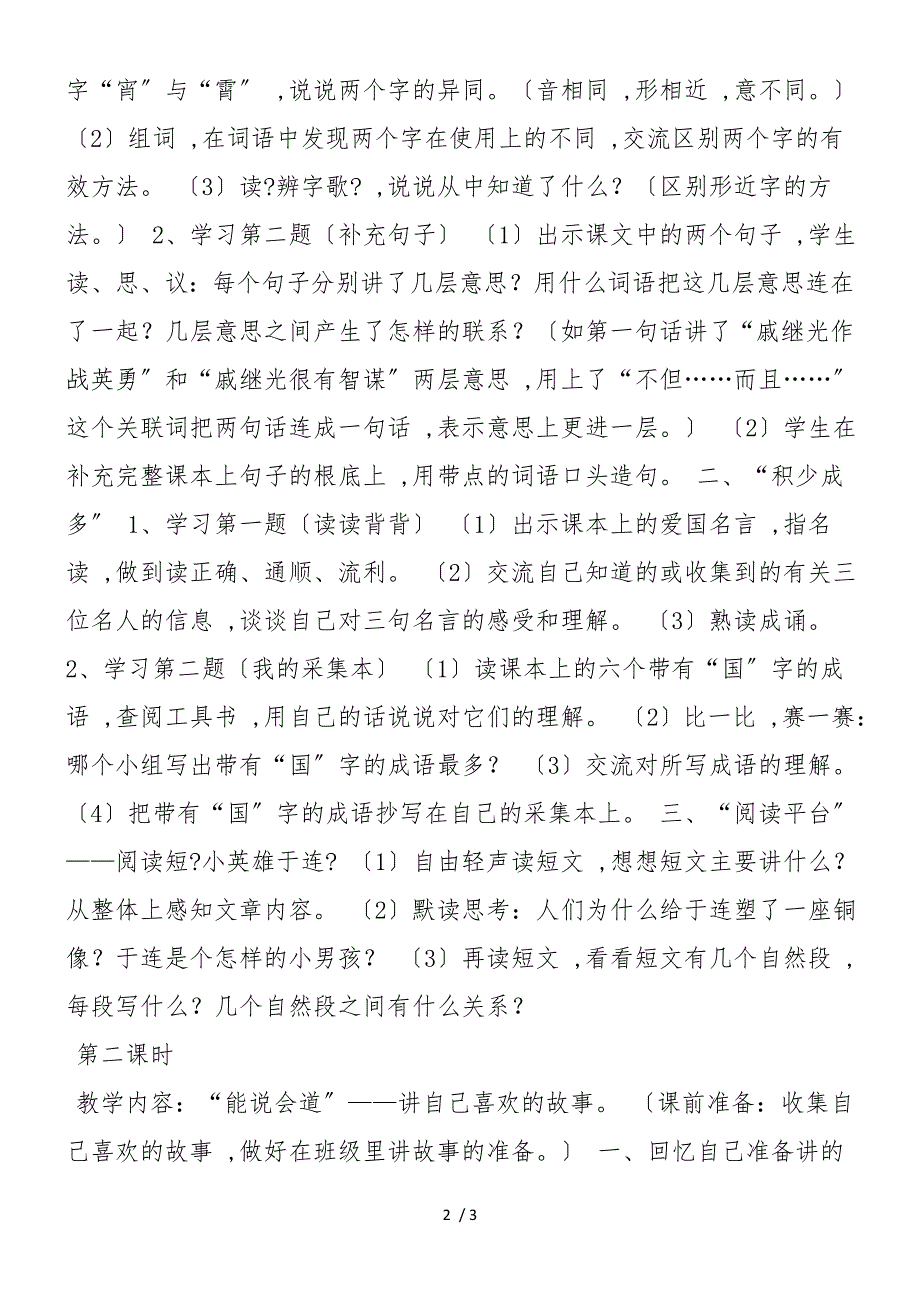 字“宵〞与“霄〞 ,说说两个字的异同。〔音相同 ,形相近 ,意不同。〕
〔2〕组词 ,在词语中发现两个字在使用上的不同 ,交流区别两个字的有
效方法。 〔3〕读?辨字歌? ,说说从中知道了什么？〔区别形近字的方
法。〕 2、学习第二题〔补充句子〕 〔1〕出示课文中的两个句子 ,学生
读、思、议：每个句子分别讲了几层意思？用什么词语把这几层意思连在
了一起？几层意思之间产生了怎样的联系？〔如第一句话讲了“戚继光作
战英勇〞和“戚继光很有智谋〞两层意思 ,用上了“不但……而且……〞
这个关联词把两句话连成一句话 ,表示意思上更进一层。〕 〔2〕学生在
补充完整课本上句子的根底上 ,用带点的词语口头造句。 二、“积少成
多〞 1、学习第一题〔读读背背〕 〔1〕出示课本上的爱国名言 ,指名
读 ,做到读正确、通顺、流利。 〔2〕交流自己知道的或收集到的有关三
位名人的信息 ,谈谈自己对三句名言的感受和理解。 〔3〕熟读成诵。
2、学习第二题〔我的采集本〕 〔1〕读课本上的六个带有“国〞字的成
语 ,查阅工具书 ,用自己的话说说对它们的理解。 〔2〕比一比 ,赛一赛：
哪个小组写出带有“国〞字的成语最多？ 〔3〕交流对所写成语的理解。
〔4〕把带有“国〞字的成语抄写在自己的采集本上。 三、“阅读平台〞
——阅读短?小英雄于连? 〔1〕自由轻声读短文 ,想想短文主要讲什么？
从整体上感知文章内容。 〔2〕默读思考：人们为什么给于连塑了一座铜
像？于连是个怎样的小男孩？ 〔3〕再读短文 ,看看短文有几个自然段 ,
每段写什么？几个自然段之间有什么关系？
第二课时
教学内容：“能说会道〞——讲自己喜欢的故事。 〔课前准备：收集自
己喜欢的故事 ,做好在班级里讲故事的准备。〕 一、回忆自己准备讲的
2 / 3